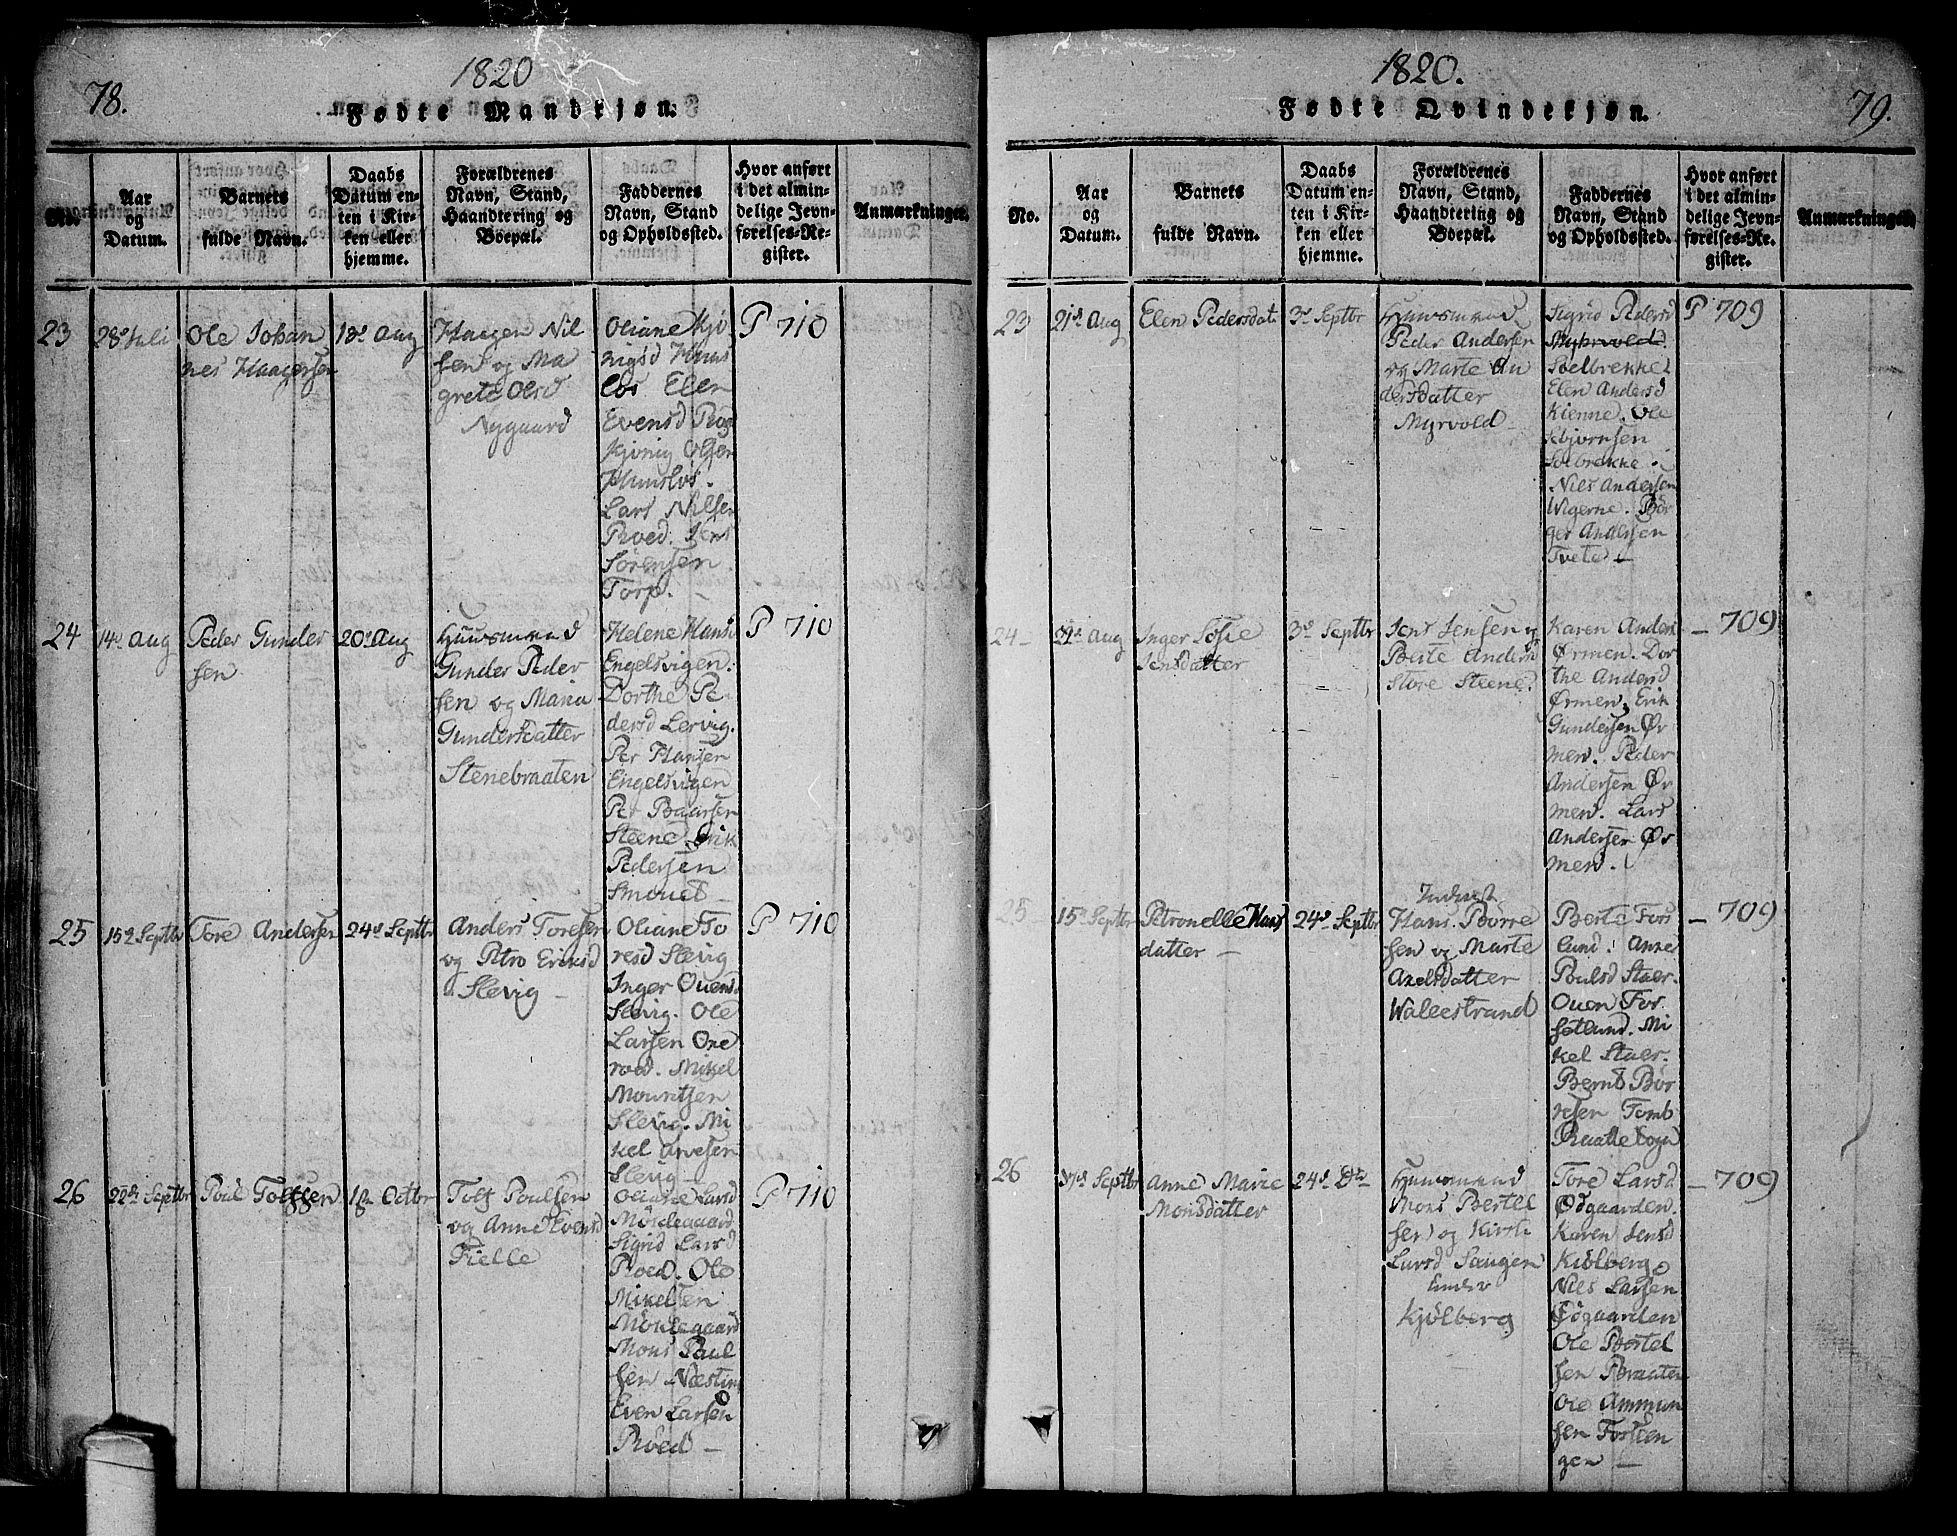 78.
1820
Fødte Mandkjøn.
No.
Aar
og
Datum.
Barnets
fulde Navn.
Daabs
Datum en-
ten i Kir-
ken eller
hjemme.
Forældrenes
Navn, Stand,
Haandtering og
Boepæl.
Faddernes
Navn, Stand
og Opholdssted.
Hvor anført
i det almin-
delige Jevn-
førelses-Re-
gister.
Anmærkninger.
23
28de Juli
Ole Johan
nes Haagensen
13de Aug
Haagen Nil
sen og Ma
grete Olsd
Nygaard
Oliane Kjø
nigsd Huns
løs Elen
Evensd Rog
Kjønig Olsen
Hunsløs.
Lars Nilsen
Roed. Jens
Sørensen
Torp. –
P 710
24
14de Aug
Peder Gunder
sen
20de Aug
Huusmand
Gunder Peder
sen og Maria
Gundersdatter
Stenebraaten
Helene Hansd
Engelsvigen.
Dorthe Pe-
dersd Lervig.
Per Hansen
Engelsvigen
Per Baarsen
Steene. Erik
Pedersen
Smouet –
P 710
25
15de Septbr
Tore Andersen
24de Septbr
Anders Toresen
og Petro Eriksd
Slevig –
Oliane To
resd Slevig
Inger Ouensd
Slevig. Ole
Larsen One
roed. Mikkel
Mouritsen
Slevig. Mi
kel Arvesen
Slevig –
P 710
26
22de Septbr
Poul Tolfsen
1ste Octbr
Tolf Poulsen
og Anne Evensd
Fielle
Oliane Larsd
Møklegaard
Sigrid Larsd
Roed. Ole
Mikelsen
Møklegaard
Mons Paul
sen Næstin
Even Larsen
Roed –
P 710
1820.
Fødte Qvindekjøn.
79.
No.
Aar
og
Datum.
Barnets
fulde Navn.
Daabs
Datum en-
ten i Kir-
ken eller
hjemme.
Forældrenes
Navn, Stand,
Haandtering og
Boepæl.
Faddernes
Navn, Stand
og Opholdssted.
Hvor anført
i det almin-
delige Jevn-
førelses-Re-
gister.
Anmærkninger.
23
21de Aug
Elen Pedersdat
3de Septbr
Huusmand
Peder Andersen
og Marte An
dersdatter
Myrvold –
Sigrid Pedersd
Myhrvold
Solbrekke
Elen Andersd
Kienne. Ole
Solbrekke
Niels Andersen
Wigerne. Bør
ger Andersen
Tvete –
P 709
24 –
Aug
Inger Sofie
Jensdatter
3de Septbr
Jens Jensen og
Berte Andersd
Store Steene.
Karen Andersd
Ørmen. Dor
the Andersd
Ørmen. Erik
Gundersen Ør
men. Peder
Andersen Ør
men. Lars
Andersen Ør
men.
– 709
25 –
15de Septbr
Petronelle Hans
datter –
24de Septbr
Inderst
Hans Børre
sen og Marte
Axelsdatter
Walestrand
Berte Fors
lund. Anne
Poulsd Staer.
Ouen For
sætlund. Mi
kel Staer.
Bernt Bør
resen Tomb
Raade Sogn
– 709
26
17de Septbr
Anne Marie
Monsdatter
24de Do
Huusmand
Mons Bertel
sen og Kirsti
Larsd Saugen
under
Kjølberg
Tore Larsd
Ødgaarden.
Karen Jensd
Kiølberg.
Niels Larsen
Ødgaarden
Ole Bertel
sen Braaten
Ole Ammun
sen Torsten
gen –
– 709